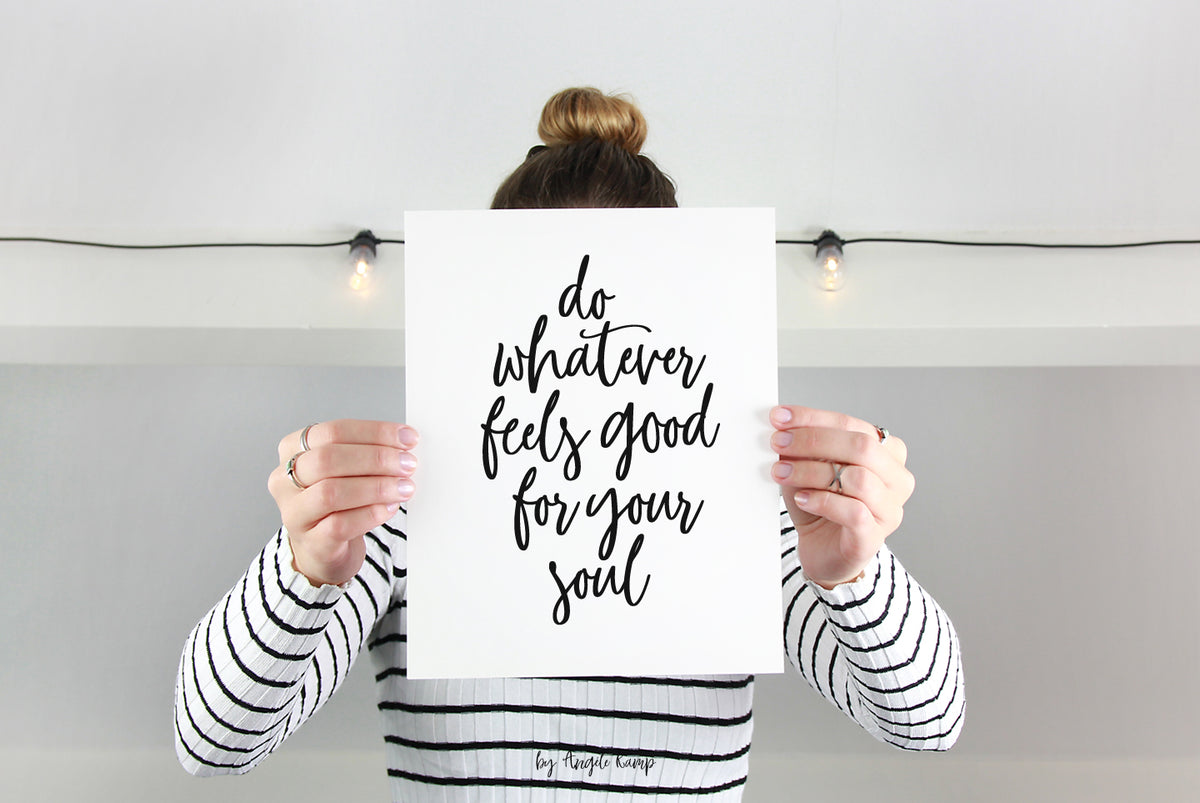 do
whatever
feels good
for your
soul
by Angele Kamp